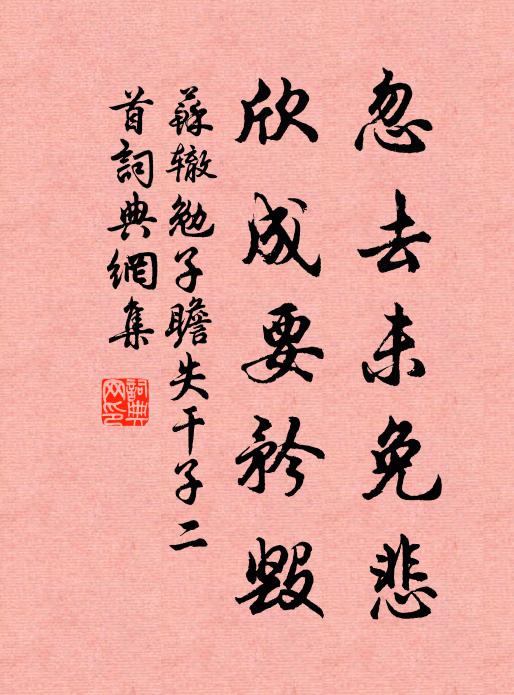 忽去未免悲
欣成要矜毀
蘇辙勉子瞻失干子二
首詞典網集
詞典
网印